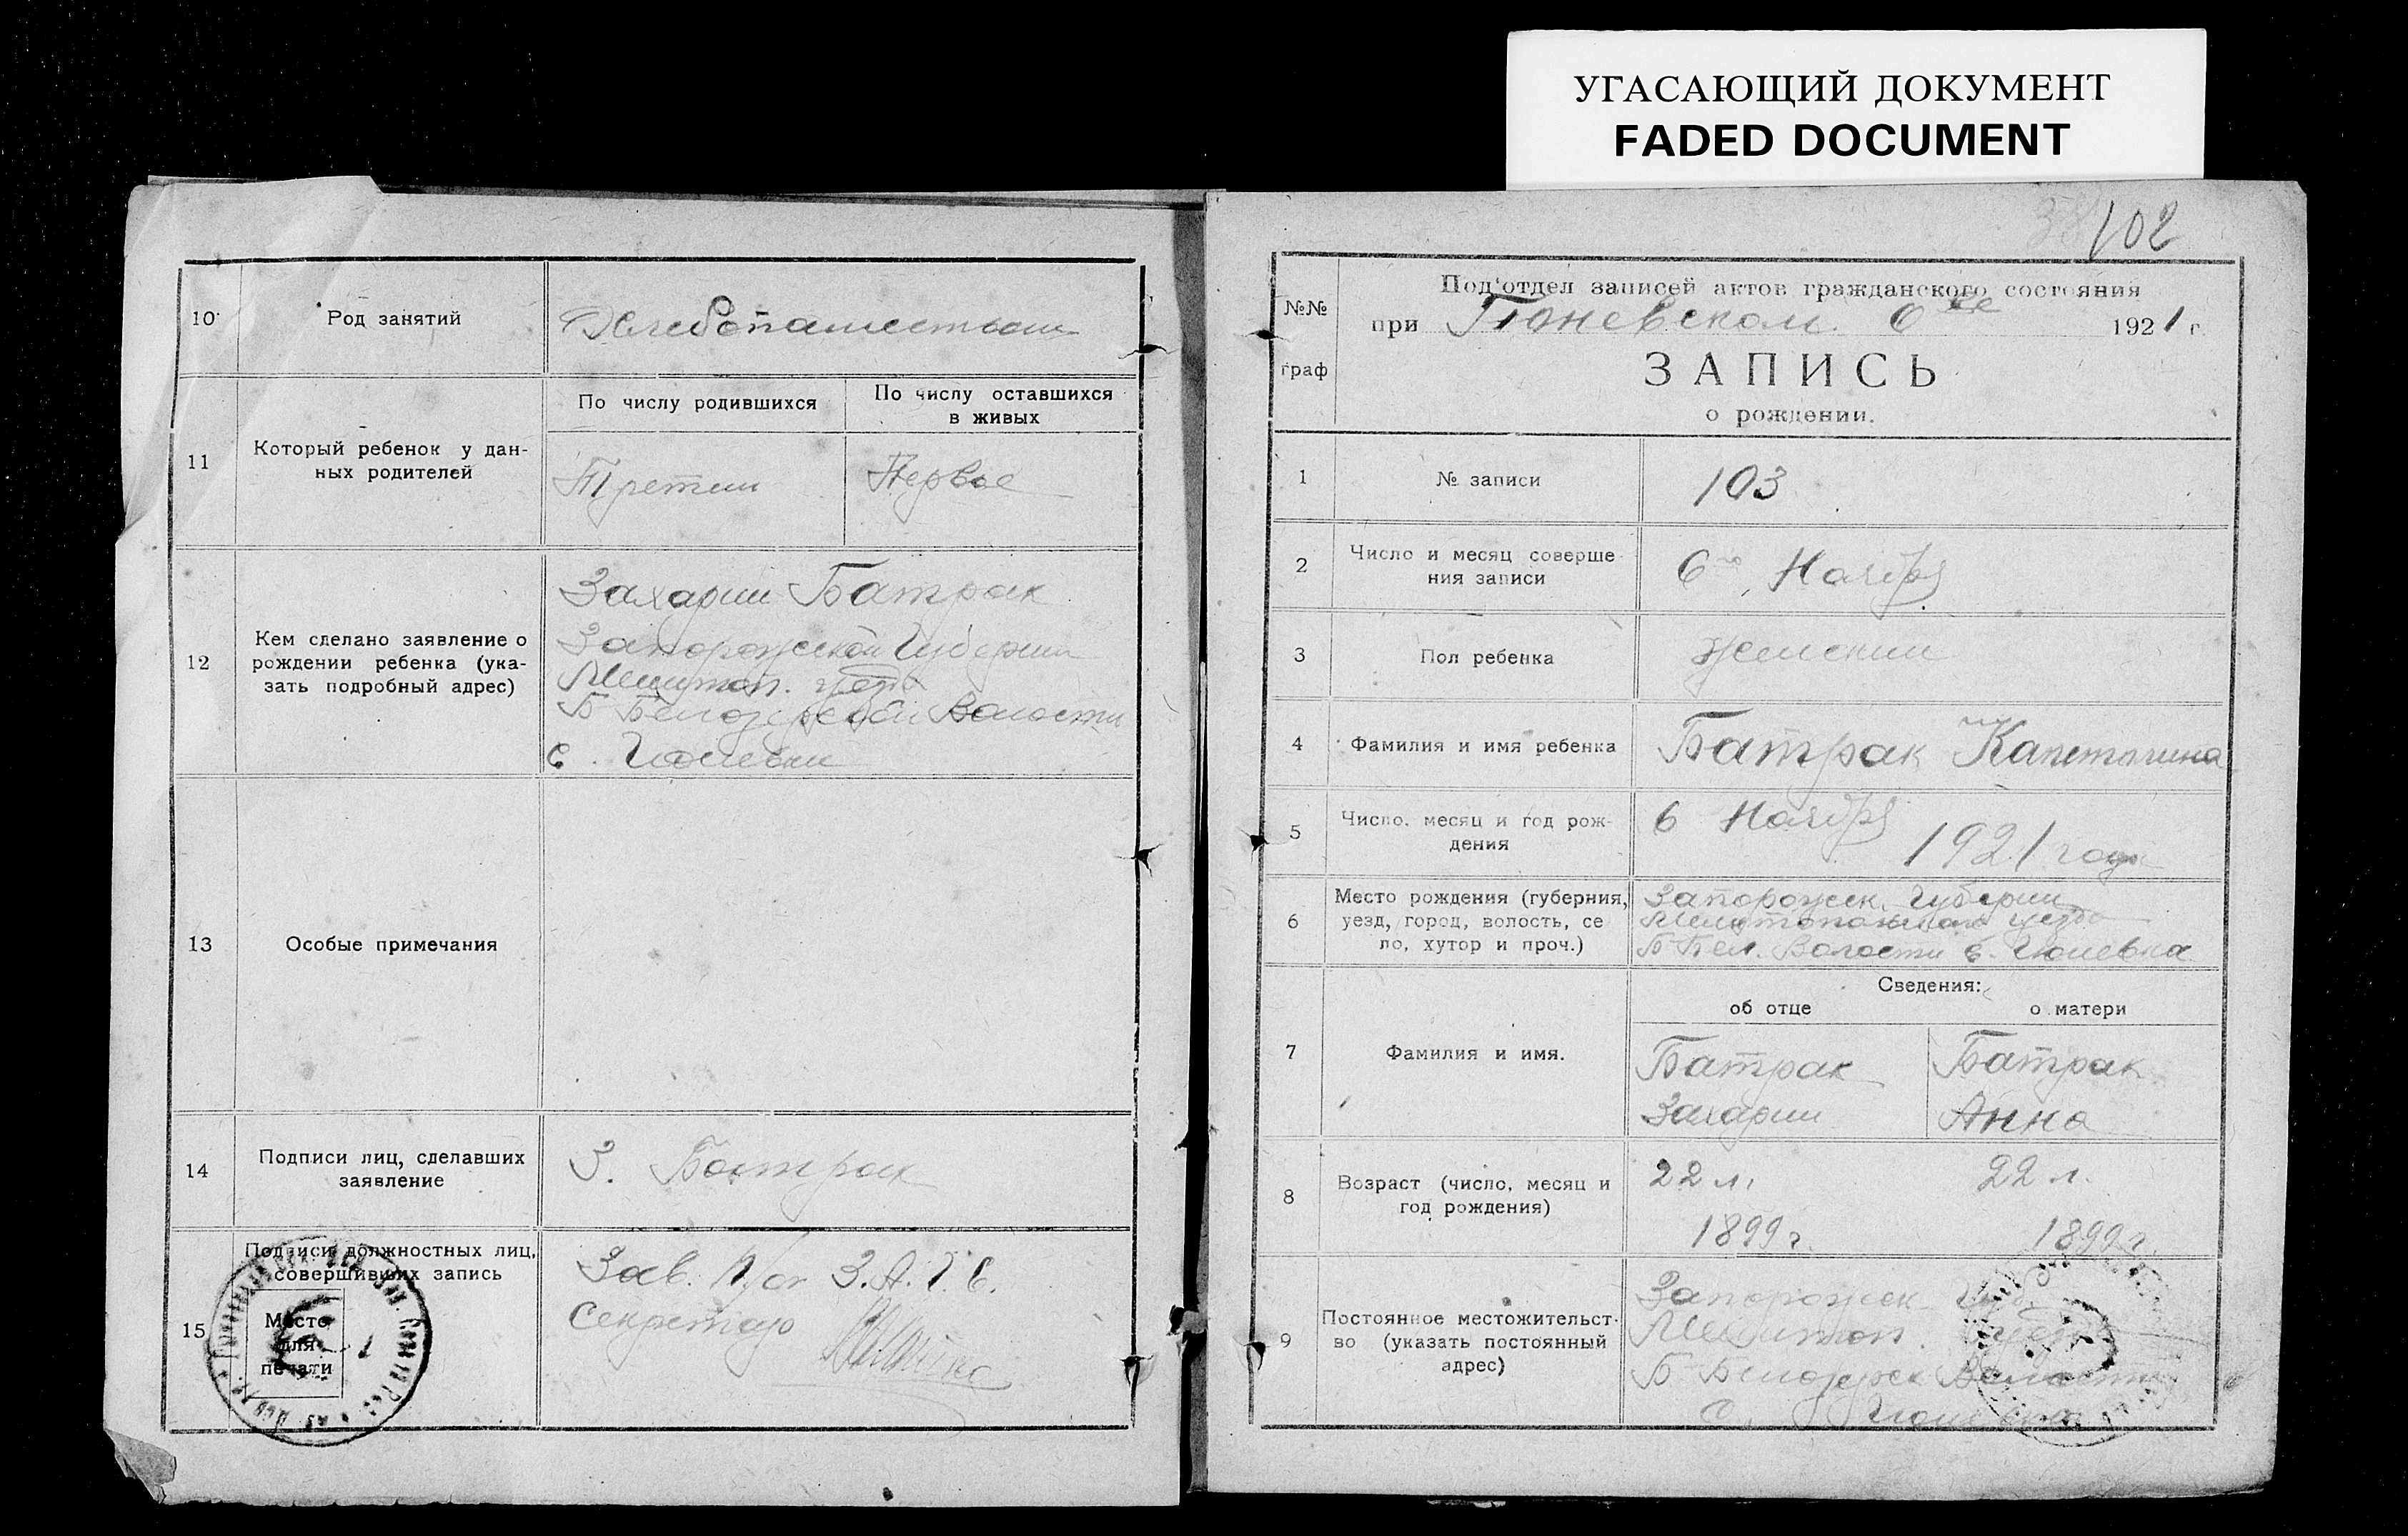 УГАСАЮЩИЙ ДОКУМЕНТ
FADED DOCUMENT
10
Род занятий
Хлебопашеством
11
Который ребенок у дан-
ных родителей
По числу родившихся
По числу оставшихся
в живых
Третий
Первое
12
Кем сделано заявление о
рождении ребенка (ука-
зать подробный адрес)
Захарий Батрак
Запорожской Губернии
Мелитоп. уезда
Б Белозерской Волости
с.
13
Особые примечания
14
Подписи лиц, сделавших
заявление
З. Батрак
15
Подписи должностных лиц,
совершивших запись
Место
для
печати
Зав. П/от З.А.Г.С.
Секретарь
102
№№
граф
Под'отдел записей актов гражданского состояния
при Гюневском 1921 г.
ЗАПИСЬ
о рождении.
1
№ записи
103
2
Число и месяц соверше
ния записи
6го Ноября
3
Пол ребенка
женский
4
Фамилия и имя ребенка
Батрак Капитолина
5
Число, месяц и год рож-
дения
6 Ноября
1921 года
6
Место рождения (губерния,
уезд, город, волость, се
ло, хутор и проч.)
Запорожск. Губернии
Мелитопольского уезда
Б Бел. Волости с. Гюневка
Сведения:
об отце
о матери
7
Фамилия и имя.
Батрак
Захарий
Батрак
Анна
8
Возраст (число, месяц и
год рождения)
22 л.
1899 г.
22 л.
1899 г.
9
Постоянное местожительст-
во (указать постоянный
адрес)
Запорожск Губ
Мелитоп. уезд
Б Белозерск Волости
с. Гюневка